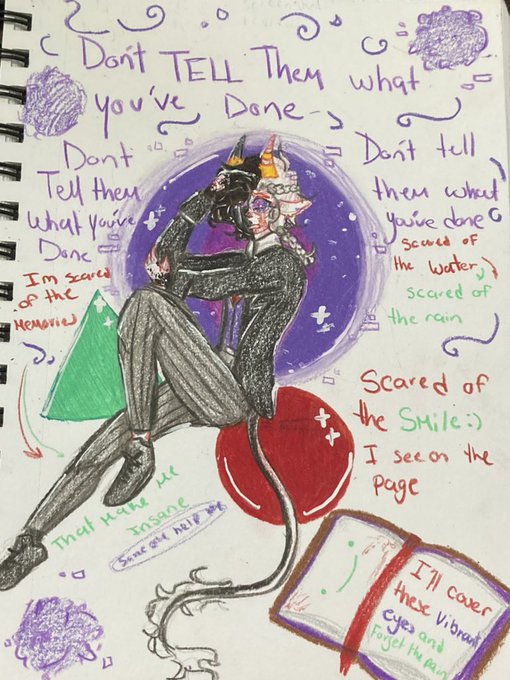 Don't TELL Them what
you've Done
Dont
Tell them
What You've
Done
Don't tell
them what
you've done
I'm scared
of the
Memories
scared of
the water
scared of
the rain
Scared of
the Smile :)
I see on the
page
That Make Me
Insane
Someone help me
:)
I'll cover
these Vibrant
eyes and
Forget the pain